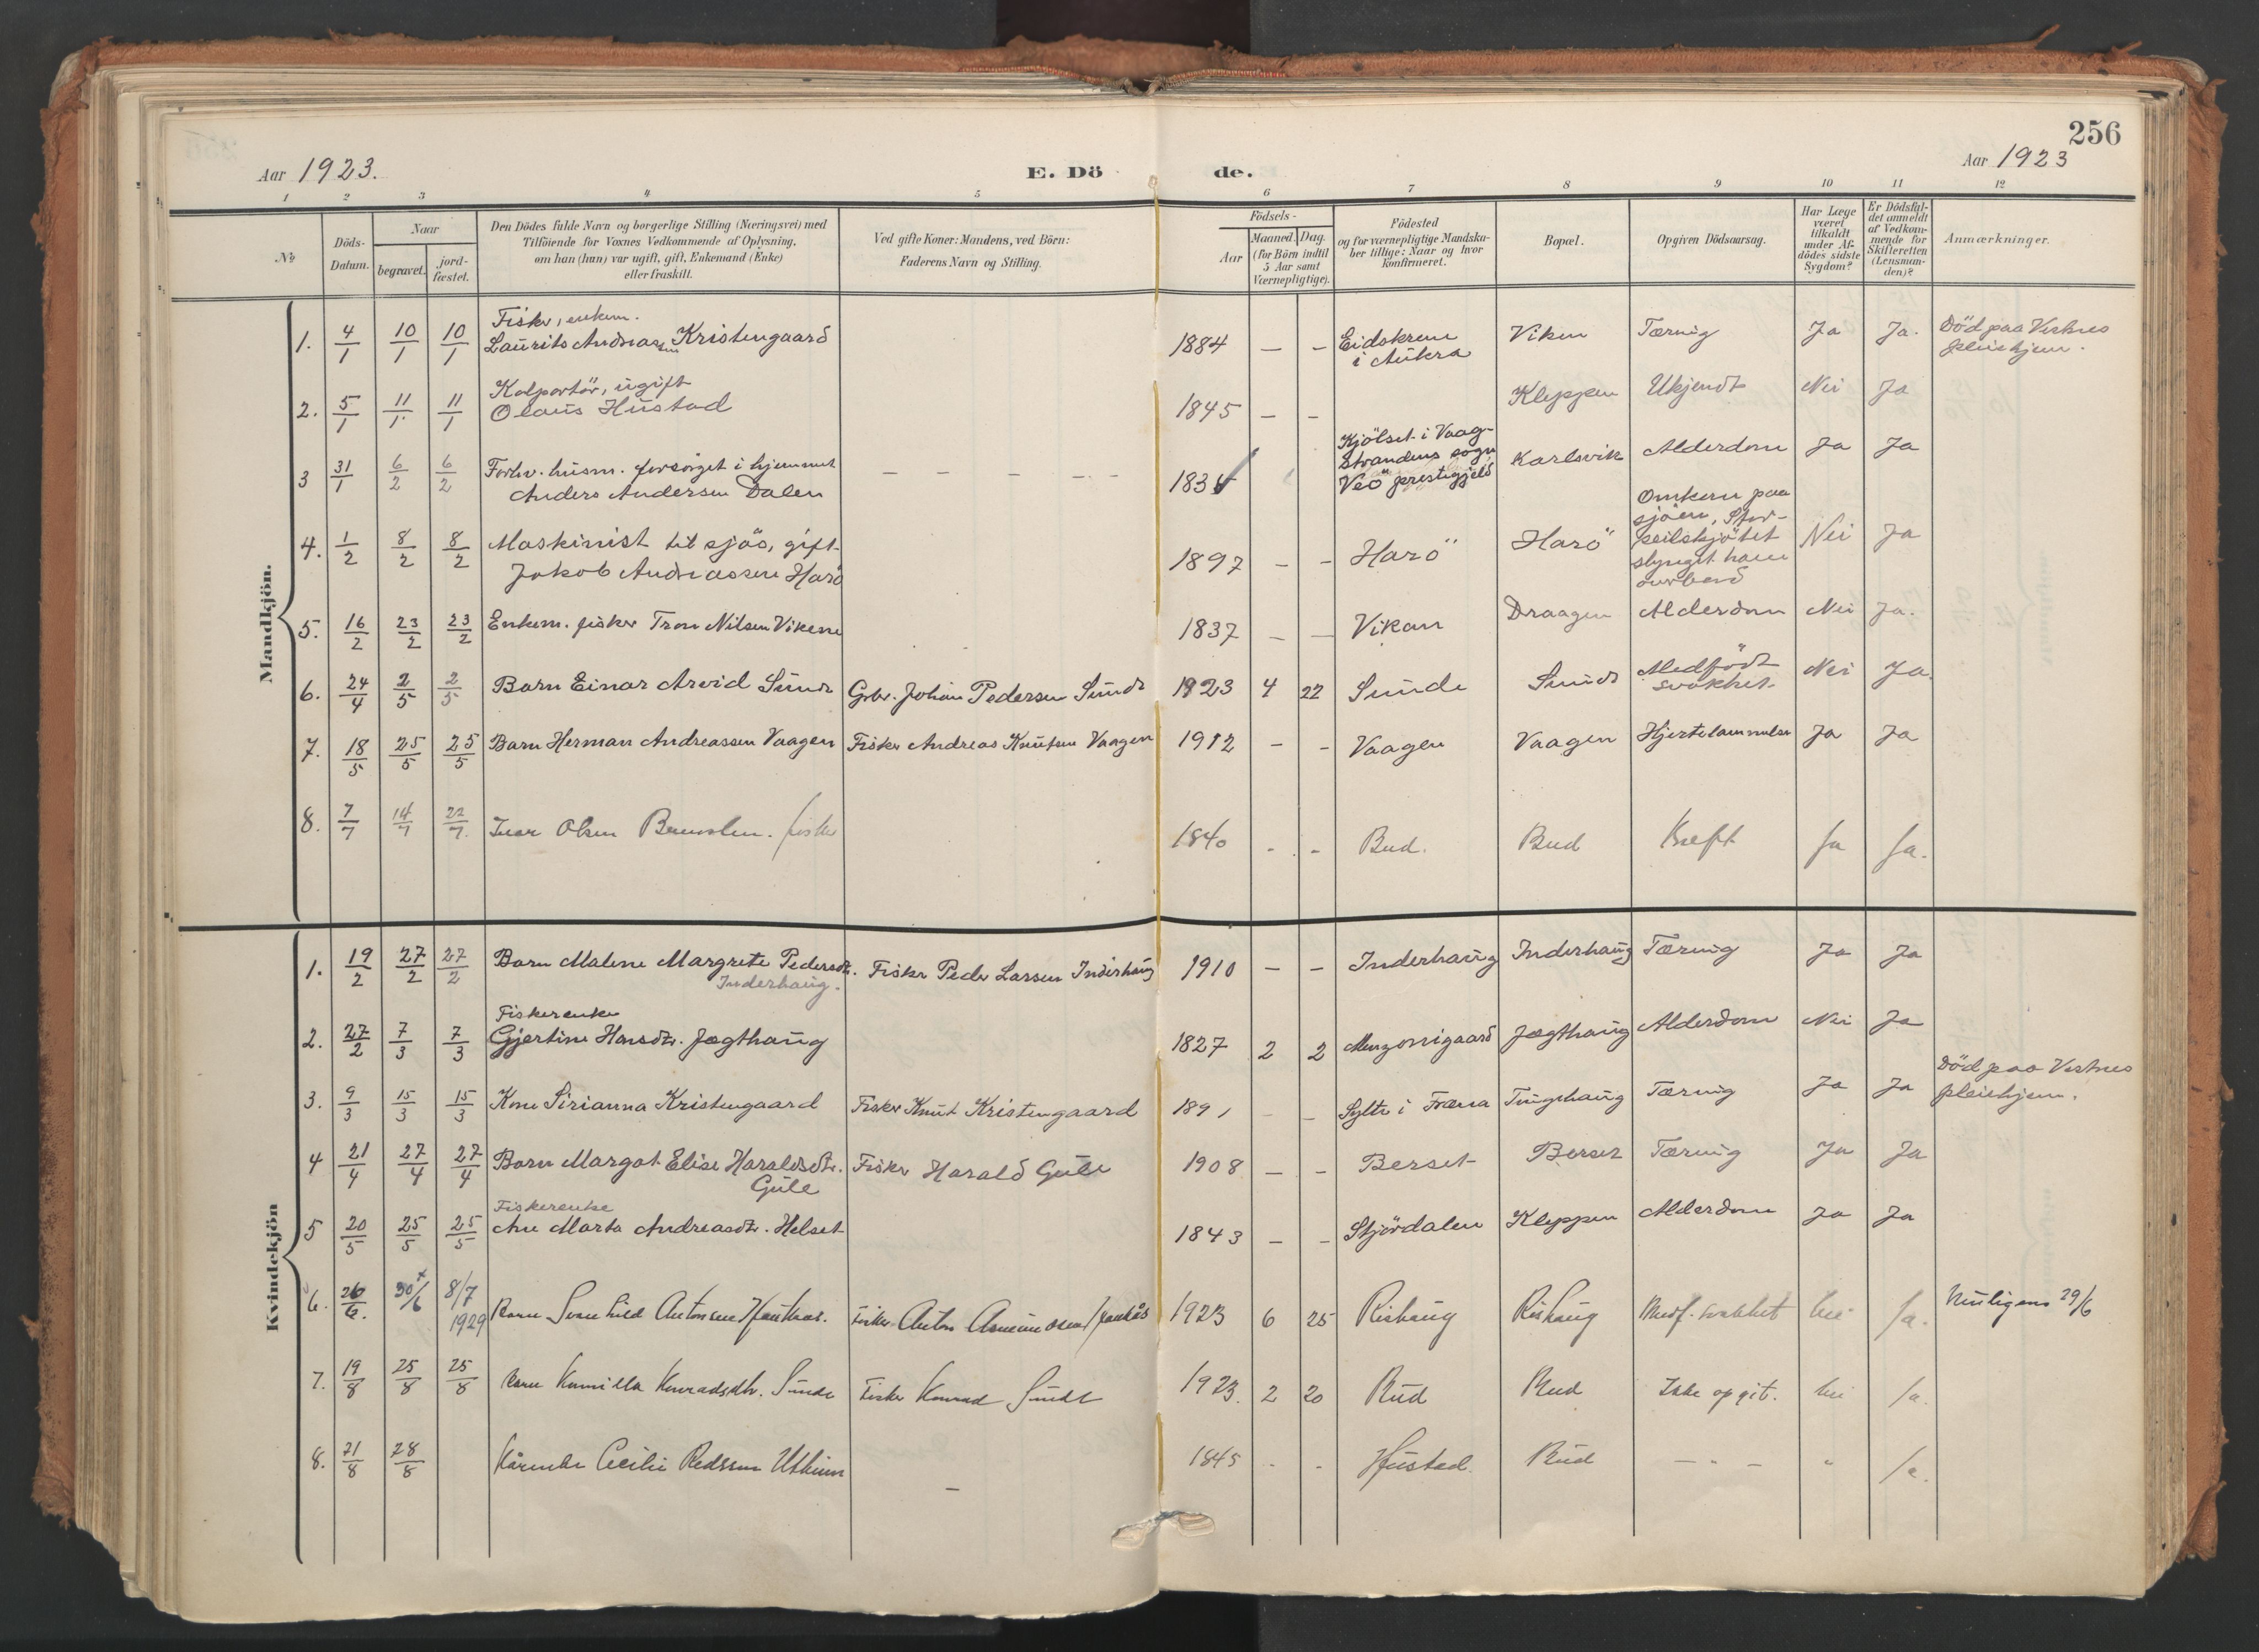 256
Aar 1923.
E. Dö
de.
Aar 1923
1 2 3 4 5 6 7 8 9 10 11 12
No
Döds-Datum.
Naar
begravet.
jord-fæstet.
Den Dödes fulde Navn og borgerlige Stilling (Næringsvei) med
Tilföiende for Voxnes Vedkommende af Oplysning,
om han (hun) var ugift, gift, Enkemand (Enke)
eller fraskilt.
Ved gifte Koner: Mandens, ved Börn:
Faderens Navn og Stilling.
Födsels-
Aar
Maaned. Dag.
(for Börn indtil
5 Aar samt
Værnepligtige).
Födested
og for værnepligtige Mandska-
ber tillige: Naar og hvor
konfirmeret.
Bopæl.
Opgiven Dödsaarsag.
Har Læge
været
tilkaldt
under Af-
dödes sidste
Sygdom?
Er Dödsfal-
det anmeldt
af Vedkom-
mende for
Skifteretten
(Lensman-
den)?
Anmærkninger.
Mandkjön.
Fisker, enkem.
1. 4/1 10/1 10/1 Laurits Andreassen Kristengaard 1884 — — Eidskrem i Aukra Viken Tæring Ja Ja. Död paa Vestnes pleiehjem.
Kolportör, ugift
2. 5/1 11/1 11/1 Olaus Hustad 1845 — — Kleppen Ukjendt Nei Ja
3 31/1 6/2 6/2 Forhv. husm. forsörget i hjemmet
Anders Andersen Dalen — — — — — 183 Kjölset i Vaag-
strandens sogn
Veö prestegjeld Karlsvik Alderdom Ja Ja
4. 1/2 8/2 8/2 Maskinist til sjös, gift
Jakob Andreassen Harö 1897 — — Harö Harö Omkom paa
sjöen, Stor-
seilskjötet
slynget ham
overbord Nei Ja
5. 16/2 23/2 23/2 Enkem. fisker Tron Nilsen Vikene 1837 — — Vikan Draagen Alderdom Nei Ja.
6. 24/4 2/5 2/5 Barn Einar Arvid Sunde Grbr. Johan Pedersen Sunde 1923 4 22 Sunde Sunde Medfödt svakhet Nei Ja.
7. 18/5 25/5 25/5 Barn Herman Andreassen Vaagen Fisker Andreas Knutsen Vaagen 1912 — — Vaagen Vaagen Hjertelammelse Ja Ja
8. 7/7 14/7 22/7. Ivar Olsen fisker 1840 - - Bud. Bud Kreft Ja Ja.
Kvindekjön
1. 19/2 27/2 27/2 Barn Malene Margrete Pedersdtr.
Inderhaug. Fisker Peder Larsen Inderhaug 1910 — — Inderhaug Inderhaug Tæring Ja Ja
Fiskerenke
2. 27/2 7/3 7/3 Gjertine Hansdtr. Jægthaug 1827 2 2 Jægthaug Alderdom Nei Ja
3. 9/3 15/3 15/3 Kone Sirianna Kristengaard Fisker Knut Kristengaard 1891 — — Sylte i Fræna Tungehaug Tæring Ja Ja Död paa Vestnes pleiehjem.
4 21/4 27/4 27/4 Barn Margot Elise Haraldsdtr.
Gule Fisker Harald Gule 1908 — — Berset Berset Tæring Ja Ja
Fiskerenke
5 20/5 25/5 25/5 Ane Marta Andreasdtr. Helset 1843 — — Stjördalen Kleppen Alderdom Ja Ja
6. 26/6. 30/6 8/7 1929 Barn Svanhild Antonsen Fisker Anton 1923 6 25 Rishaug Rishaug Medf. svakhet Nei Ja. Muligens 29/6
7. 19/8 25/8 25/8 Barn Kamilla Konradsdtr. Sunde Fisker Konrad Sunde 1923. 2 20 Bud Bud Ikke opgit. Nei Ja.
8. 21/8 28/8 Kårenke Cecilie Utheim — 1845 - - Hustad. Bud — " — " Ja.